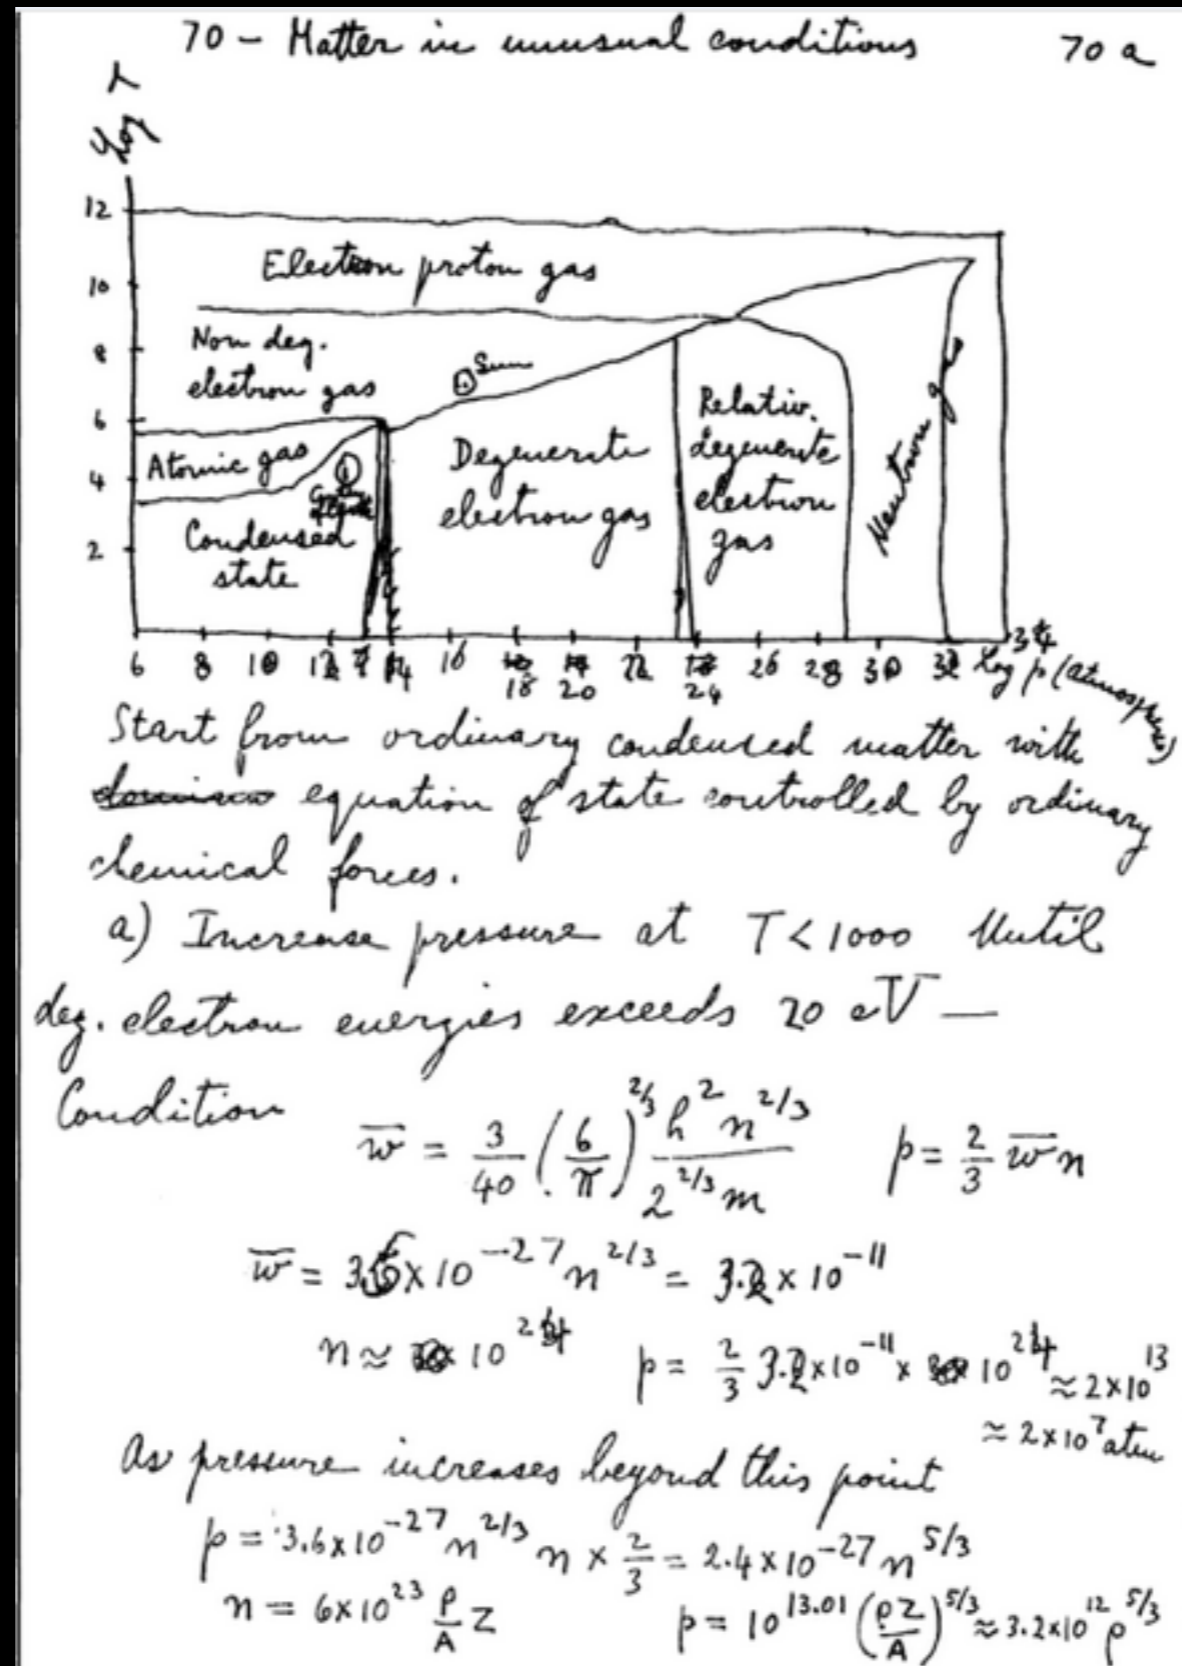 70 – Matter in unusual conditions 70 a
Log T
12
10
8
6
4
2
Electron proton gas
Non deg.
electron gas
Sun
Atomic gas
Condensed
state
Degenerate
electron gas
Relativ.
degenerate
electron
gas
Neutron gas
6 8 10 12 14 16 18 20 22 24 26 28 30 32 34 Log p (atmospheres)
Start from ordinary condensed matter with
equation of state controlled by ordinary
chemical forces.
a) Increase pressure at T < 1000 Until
deg. electron energies exceeds 20 eV —
Condition
w̄ = 3/40 (6/π)^2/3 h^2 n^2/3 / 2^2/3 m p = 2/3 w̄ n
w̄ = 3.6 × 10^-27 n^2/3 = 3.2 × 10^-11
n ≈ 10^24 p = 2/3 3.2 × 10^-11 × 10^24 ≈ 2 × 10^13
≈ 2 × 10^7 atm
As pressure increases beyond this point
p = 3.6 × 10^-27 n^2/3 n × 2/3 = 2.4 × 10^-27 n^5/3
n = 6 × 10^23 ρ/A Z p = 10^13.01 (ρZ/A)^5/3 ≈ 3.2 × 10^12 ρ^5/3